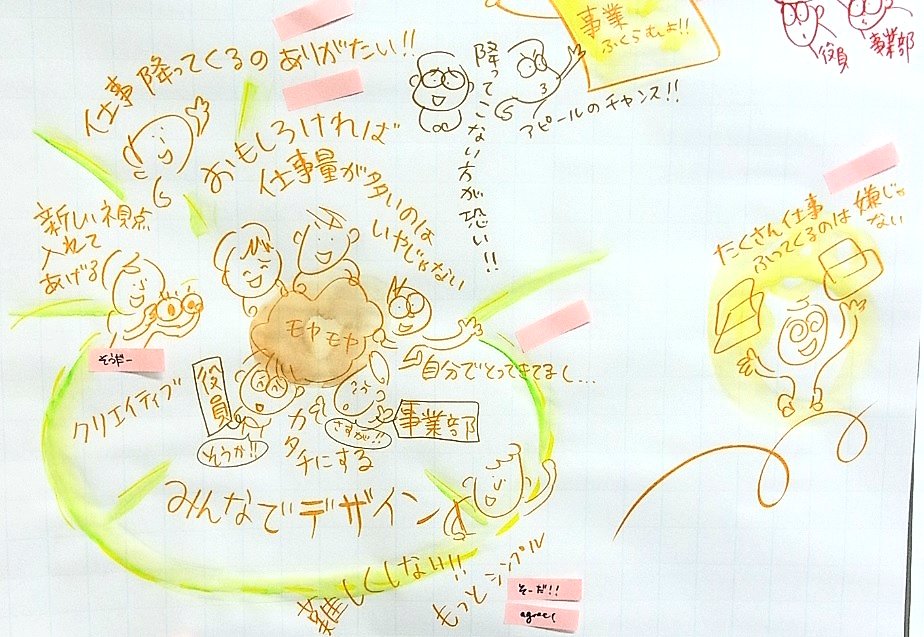 仕事降ってくるのありがたい!!
おもしろければ
仕事量が多いのは
いやじゃない
降ってこない方が恐い!!
事業
ふくらむよ!!
アピールのチャンス!!
役員
事業部
新しい視点
入れて
あげる
モヤモヤ
自分でとってきてまし...
そうだー
クリエイティブ
役員
そうか!!
カタチにする
さすが!!
事業部
みんなでデザイン
難しくしない!!
もっとシンプル
そーだ!!
agree!
たくさん仕事
ふってくるのは嫌じゃ
ない